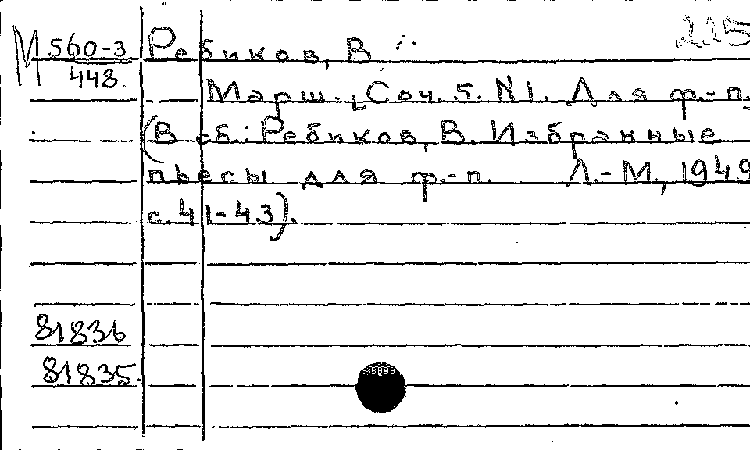 215
М 560-3 Ребиков, В.
448. Марш. Соч. 5. N1. Для ф.-п.
(В сб.: Ребиков, В. Избранные
пьесы для ф.-п. Л.-М., 1949
с. 41-43).
81836
81835.